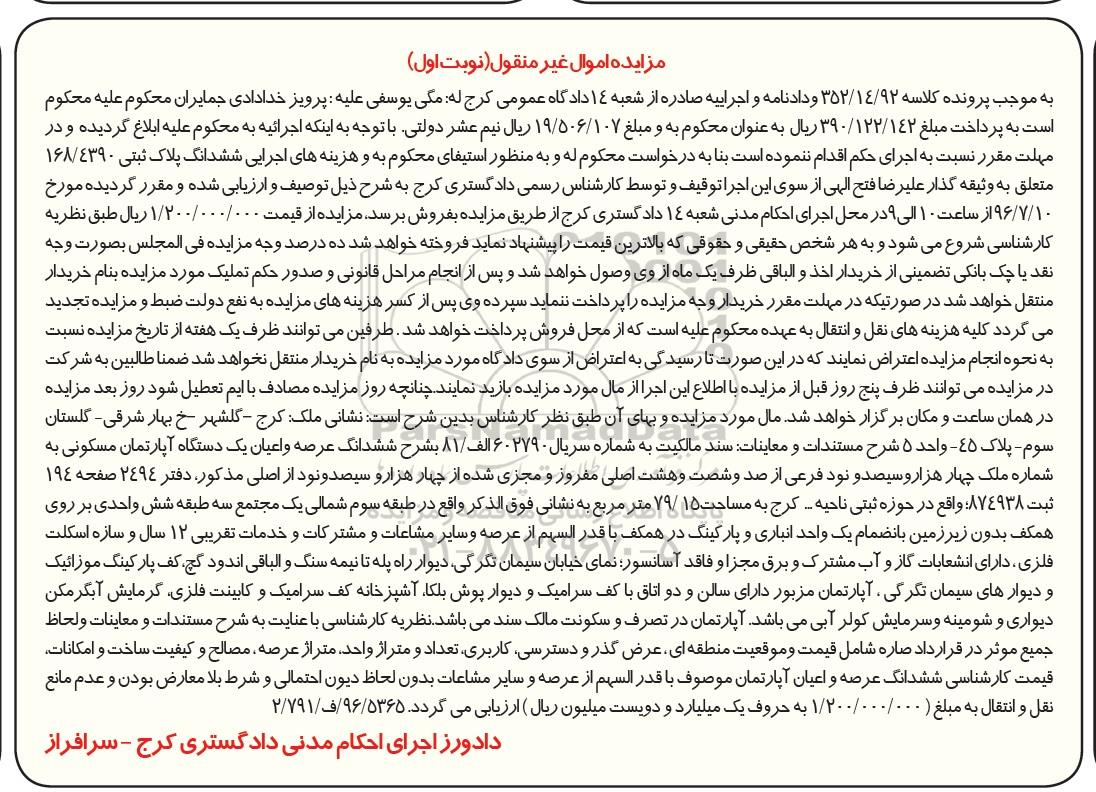 مزایده اموال غیر منقول(نوبت اول)
به موجب پرونده کلاسه ۳۵۲/۱۴/۹۲ ودادنامه و اجراییه صادره از شعبه ۱۴دادگاه عمومی کرج له: مگی یوسفی علیه : پرویز خدادادی جمایران محکوم علیه محکوم
است به پرداخت مبلغ ۳۹۰/۱۲۲/۱۴۲ ریال به عنوان محکوم به و مبلغ ۱۹/۵۰۶/۱۰۷ ریال نیم عشر دولتی. با توجه به اینکه اجرائیه به محکوم علیه ابلاغ گردیده و در
مهلت مقرر نسبت به اجرای حکم اقدام ننموده است بنا به درخواست محکوم له و به منظور استیفای محکوم به و هزینه های اجرایی ششدانگ پلاک ثبتی ۱۶۸/۴۳۹۰
متعلق به وثیقه گذار علیرضا فتح الهی از سوی این اجرا توقیف و توسط کارشناس رسمی دادگستری کرج به شرح ذیل توصیف و ارزیابی شده و مقرر گردیده مورخ
۹۶/۷/۱۰از ساعت۱۰الی۹در محل اجرای احکام مدنی شعبه ۱۴ دادگستری کرج از طریق مزایده بفروش برسد، مزایده از قیمت ۱/۲۰۰/۰۰۰/۰۰۰ ریال طبق نظریه
کارشناسی شروع می شود و به هر شخص حقیقی و حقوقی که بالاترین قیمت را پیشنهاد نماید فروخته خواهد شد ده درصد وجه مزایده فی المجلس بصورت وجه
نقد یا چک بانکی تضمینی از خریدار اخذ و الباقی ظرف یک ماه از وی وصول خواهد شد و پس از انجام مراحل قانونی و صدور حکم تملیک مورد مزایده بنام خریدار
منتقل خواهد شد در صورتیکه در مهلت مقرر خریدار وجه مزایده را پرداخت ننماید سپرده وی پس از کسر هزینه های مزایده به نفع دولت ضبط و مزایده تجدید
می گردد کلیه هزینه های نقل و انتقال به عهده محکوم علیه است که از محل فروش پرداخت خواهد شد . طرفین می توانند ظرف یک هفته از تاریخ مزایده نسبت
به نحوه انجام مزایده اعتراض نمایند که در این صورت تا رسیدگی به اعتراض از سوی دادگاه مورد مزایده به نام خریدار منتقل نخواهد شد ضمنا طالبین به شرکت
در مزایده می توانند ظرف پنج روز قبل از مزایده با اطلاع این اجرا از مال مورد مزایده بازید نمایند.چنانچه روز مزایده مصادف با ایم تعطیل شود روز بعد مزایده
در همان ساعت و مکان برگزار خواهد شد. مال مورد مزایده و بهای آن طبق نظر کارشناس بدین شرح است: نشانی ملک: کرج –گلشهر –خ بهار شرقی- گلستان
سوم- پلاک ۴۵- واحد ۵ شرح مستندات و معاینات: سند مالکیت به شماره سریال ۶۰۲۷۹۰الف/۸۱ بشرح ششدانگ عرصه واعیان یک دستگاه آپارتمان مسکونی به
شماره ملک چهار هزاروسیصدو نود فرعی از صد وشصت وهشت اصلی مفروز و مجزی شده از چهار هزارو سیصدونود از اصلی مذکور، دفتر ۲۴۹۴ صفحه ۱۹۴
ثبت ۸۷۴۹۳۸؛ واقع در حوزه ثبتی ناحیه ... کرج به مساحت۷۹/۱۵ متر مربع به نشانی فوق الذکر واقع در طبقه سوم شمالی یک مجتمع سه طبقه شش واحدی بر روی
همکف بدون زیرزمین بانضمام یک واحد انباری و پارکینگ در همکف با قدر السهم از عرصه وسایر مشاعات و مشترکات و خدمات تقریبی ۱۲ سال و سازه اسکلت
فلزی ، دارای انشعابات گاز و آب مشترک و برق مجزا و فاقد آسانسور؛ نمای خیابان سیمان تگرگی، دیوار راه پله تا نیمه سنگ و الباقی اندود گچ،کف پارکینگ موزائیک
و دیوار های سیمان تگرگی ، آپارتمان مزبور دارای سالن و دو اتاق با کف سرامیک و دیوار پوش بلکا، آشپزخانه کف سرامیک و کابینت فلزی، گرمایش آبگرمکن
دیواری و شومینه وسرمایش کولر آبی می باشد. آپارتمان در تصرف و سکونت مالک سند می باشد.نظریه کارشناسی با عنایت به شرح مستندات و معاینات ولحاظ
جمیع موثر در قرارداد صاره شامل قیمت وموقعیت منطقه ای ، عرض گذر و دسترسی، کاربری، تعداد و متراژ واحد، متراژ عرصه ، مصالح و کیفیت ساخت و امکانات،
قیمت کارشناسی ششدانگ عرصه و اعیان آپارتمان موصوف با قدر السهم از عرصه و سایر مشاعات بدون لحاظ دیون احتمالی و شرط بلا معارض بودن و عدم مانع
نقل و انتقال به مبلغ ( ۱/۲۰۰/۰۰۰/۰۰۰ به حروف یک میلیارد و دویست میلیون ریال ) ارزیابی می گردد. ۹۶/۵۳۶۵/ف/۲/۷۹۱
دادورز اجرای احکام مدنی دادگستری کرج – سرافراز
ParsNamadData
۰۲۱-۸۸۳۴۹۶۷۰-۵